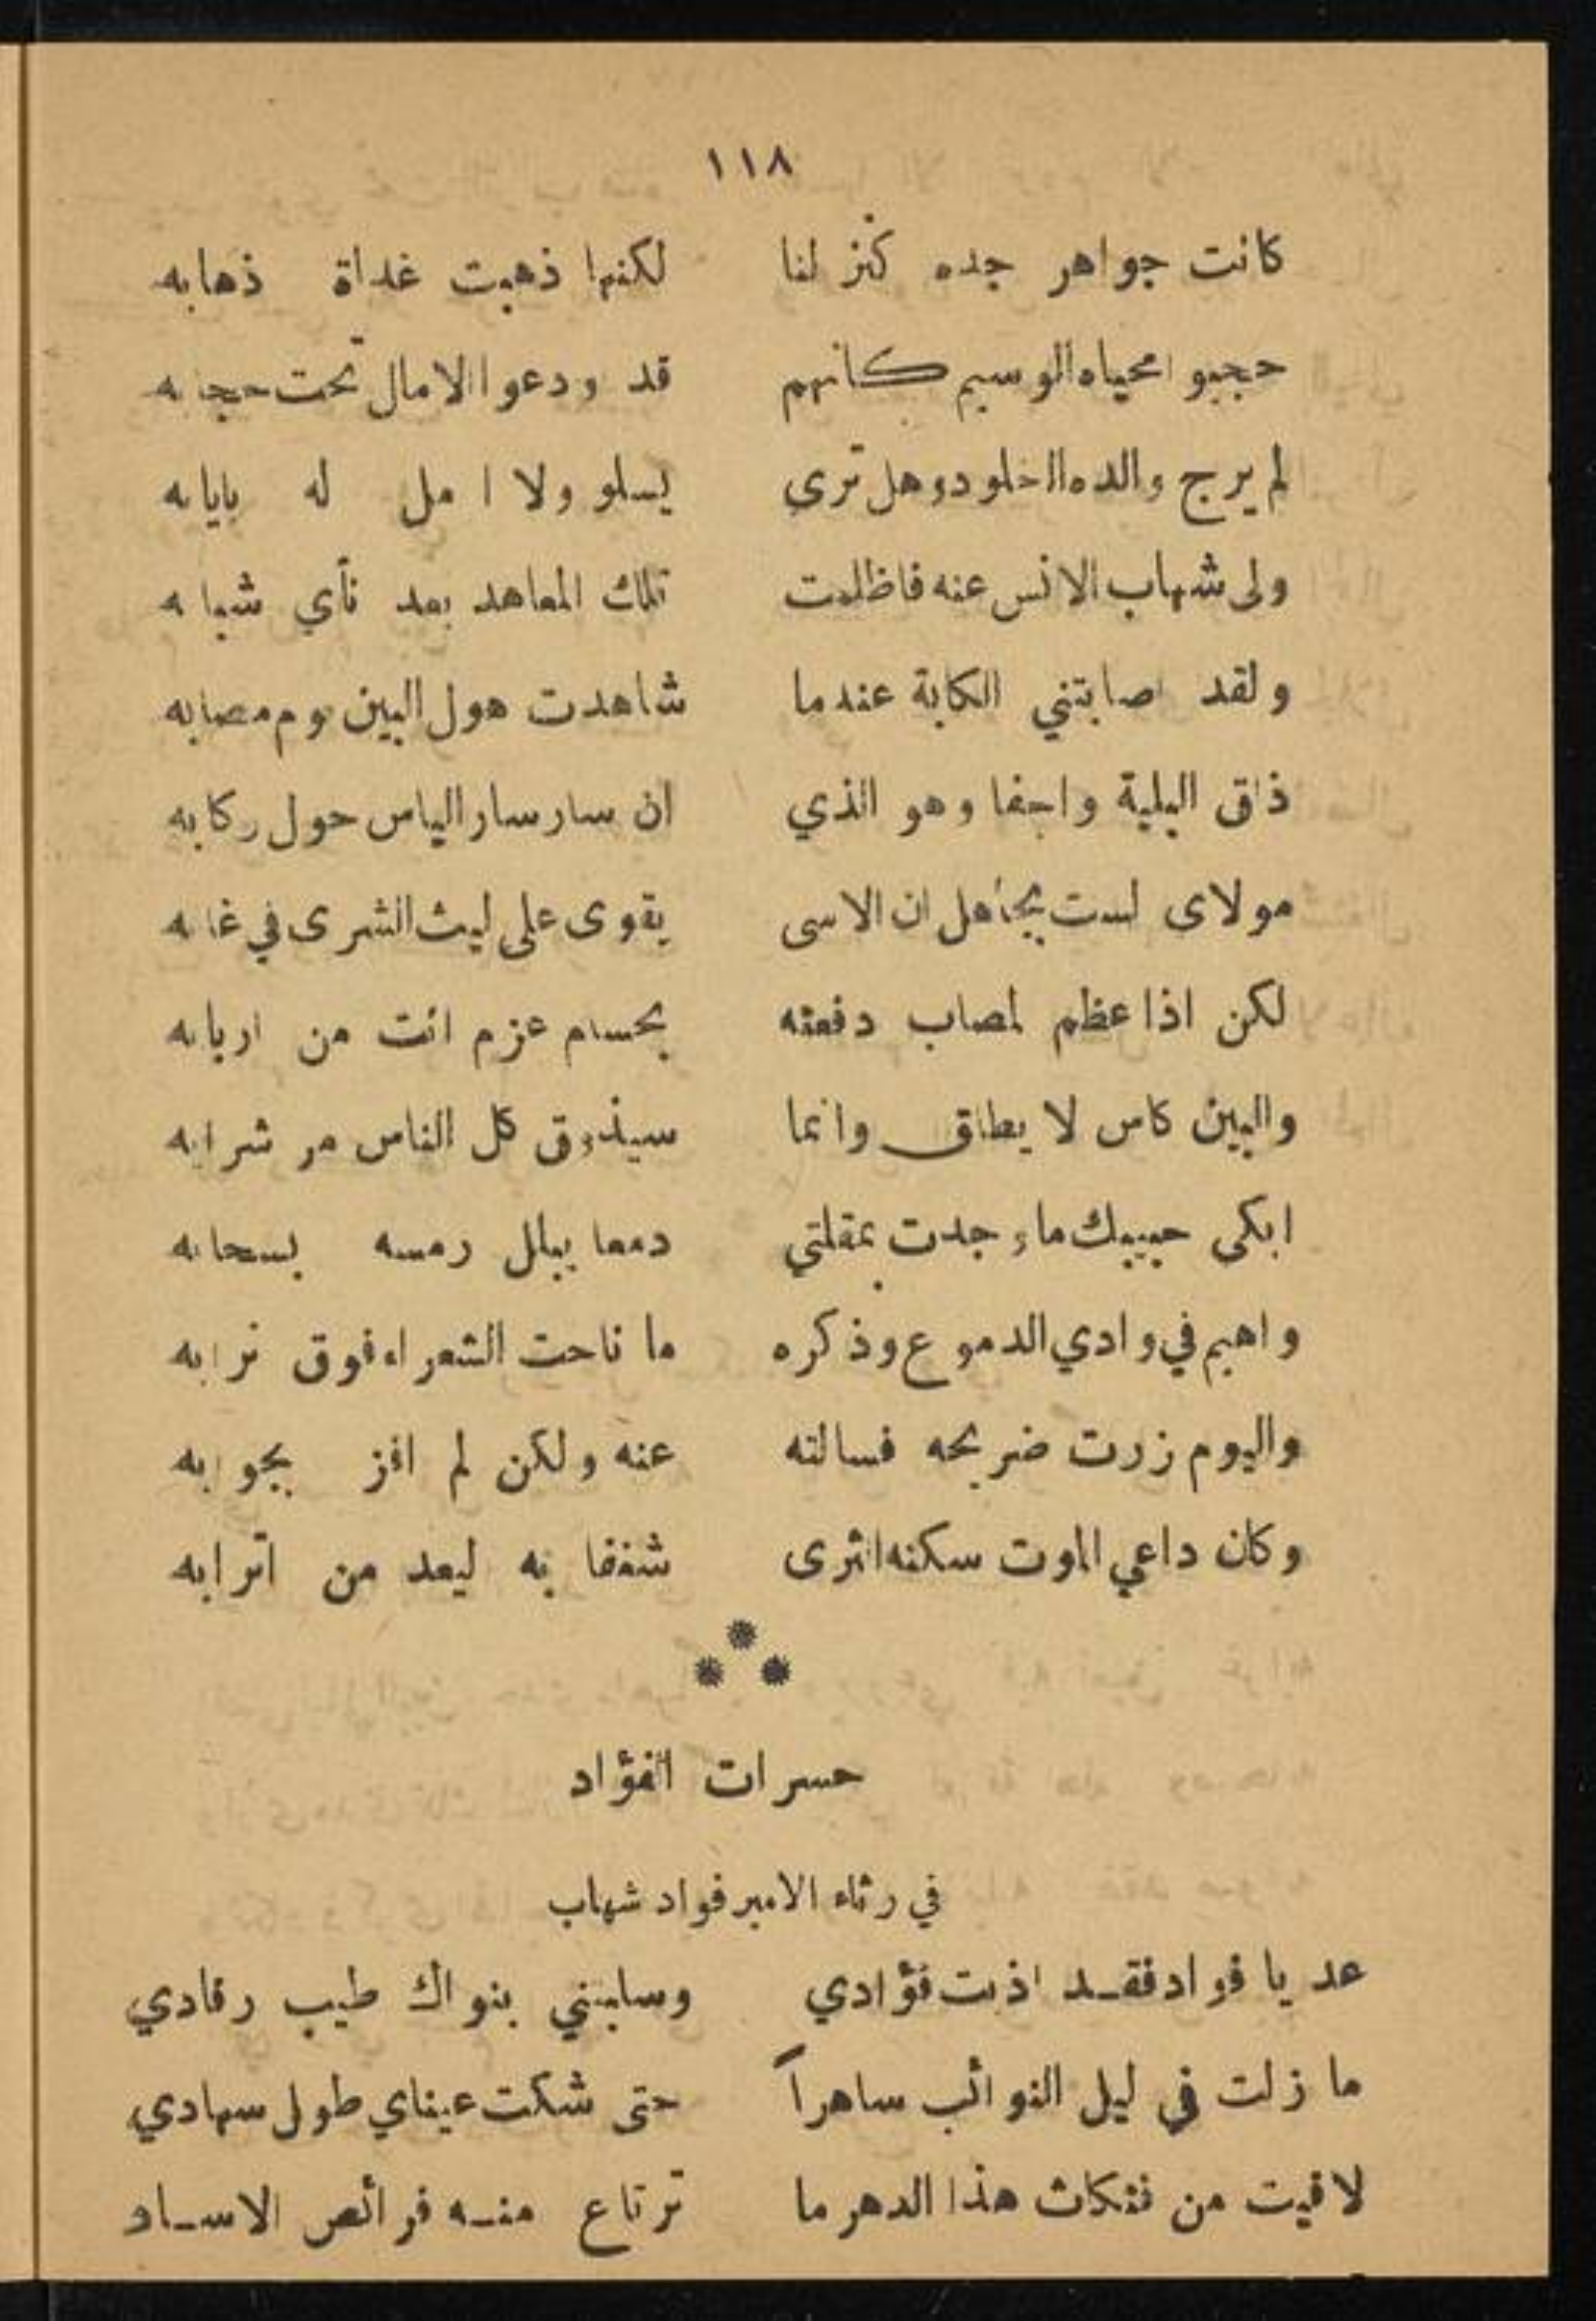 ١١٨
كانت جواهر جده كنز لنا لكنها ذهبت غداة ذهابه
حجبوا محياه الوسيم كانهم قد ودعوا الامال تحت حجابه
لم يرج والده الخلود وهل ترى يسلو ولا امل له بايابه
ولى شهاب الانس عنه فاظلمت تلك المعاهد بعد نأي شبابه
ولقد اصابتني الكابة عندما شاهدت هول البين يوم مصابه
ذاق البلية واجفا وهو الذي ان سار سار الياس حول ركابه
مولاى لست بجاهل ان الاسى يقوى على ليث الشرى في غابه
لكن اذا عظم المصاب دفعته بحسام عزم انت من اربابه
والبين كاس لا يطاق وانما سيذوق كل الناس مر شرابه
ابكى حبيبك ما وجدت بمقلتي دمعا يبلل رمسه بسحابه
واهيم في وادي الدموع وذكره ما ناحت الشعراء فوق ترابه
واليوم زرت ضريحه فسالته عنه ولكن لم افز بجوابه
وكان داعي الموت سكنه الثرى شغفا به ليعد من اترابه
حسرات الفؤاد
في رثاء الامير فواد شهاب
عد يا فواد فقد اذبت فؤادي وسلبتني بنواك طيب رقادي
ما زلت في ليل النوائب ساهراً حتى شكت عيناي طول سهادي
لاقيت من فتكات هذا الدهر ما ترتاع منه فرائص الاساد